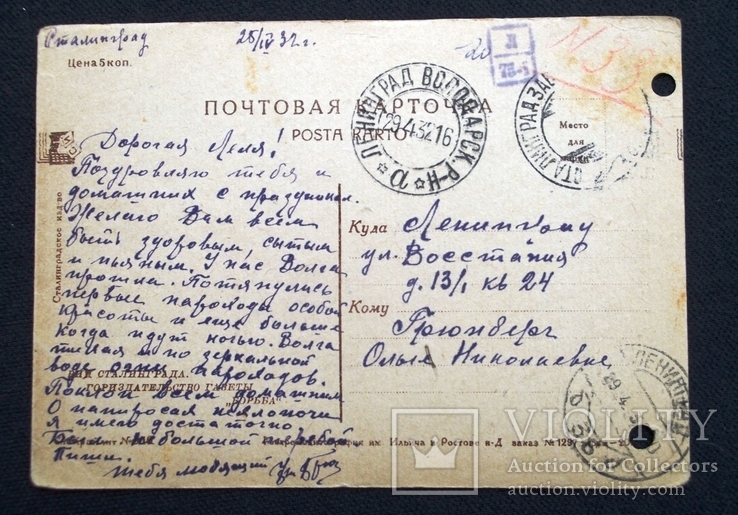 Сталинград 25/IV 32 г.
Цена 5 коп.
Л
М 33
ПОЧТОВАЯ КАРТОЧКА
POSTA KARTO
ЛЕНИНГРАД ВОЛОДАРСК. Р-Н
29.4.32.16
СТАЛИНГРАД
Место
для
Дорогая Леля!
Поздравляю тебя и
домашних с праздником.
Желаю Вам всем
быть здоровым, сытым
и пьяным. У нас Волга
прошла. Потянулись
первые пароходы особой
красоты и еще больше
когда идут ночью. Волга
тихая и по зеркальной
воде огни пароходов.
Поклон всем домашним
О папиросах не хлопочи
я имею достаточно
небольшой
Пиши.
тебя любящий
Сталинградское изд-во
ВИД СТАЛИНГРАДА.
ГОРИЗДАТЕЛЬСТВО ГАЗЕТЫ
"БОРЬБА"
им. Ильича в Ростове н-Д заказ № 129
Куда Ленинград
ул. Восстания
д. 13/1 кв 24
Кому Грюнберг
Ольге Николаевне
ЛЕНИНГРАД
29.4
VIOLITY
Auction for Collectors
auction.violity.com